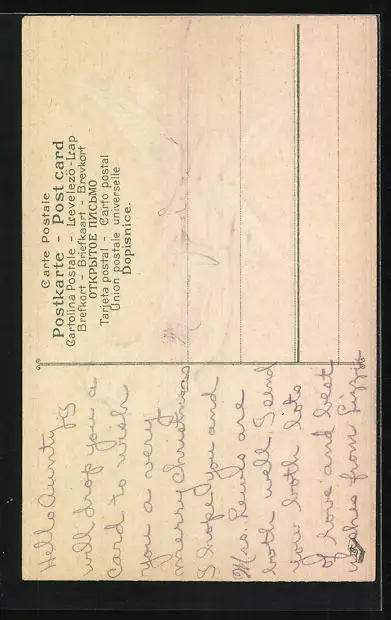 Carte Postale
Postkarte - Post card
Cartolina Postale - Levelező-Lap
Brefkort - Briefkaart - Brevkort
ОТКРЫТОЕ ПИСЬМО
Tarjeta postal - Carto postal
Union postale universelle
Dopisnice.
Hello Aunty I
will drop you a
Card to wish
you a very
merry christmas
I hope you and
Mrs. Lewis are
both well I send
you both lots
of love and best
wishes from Lizzy